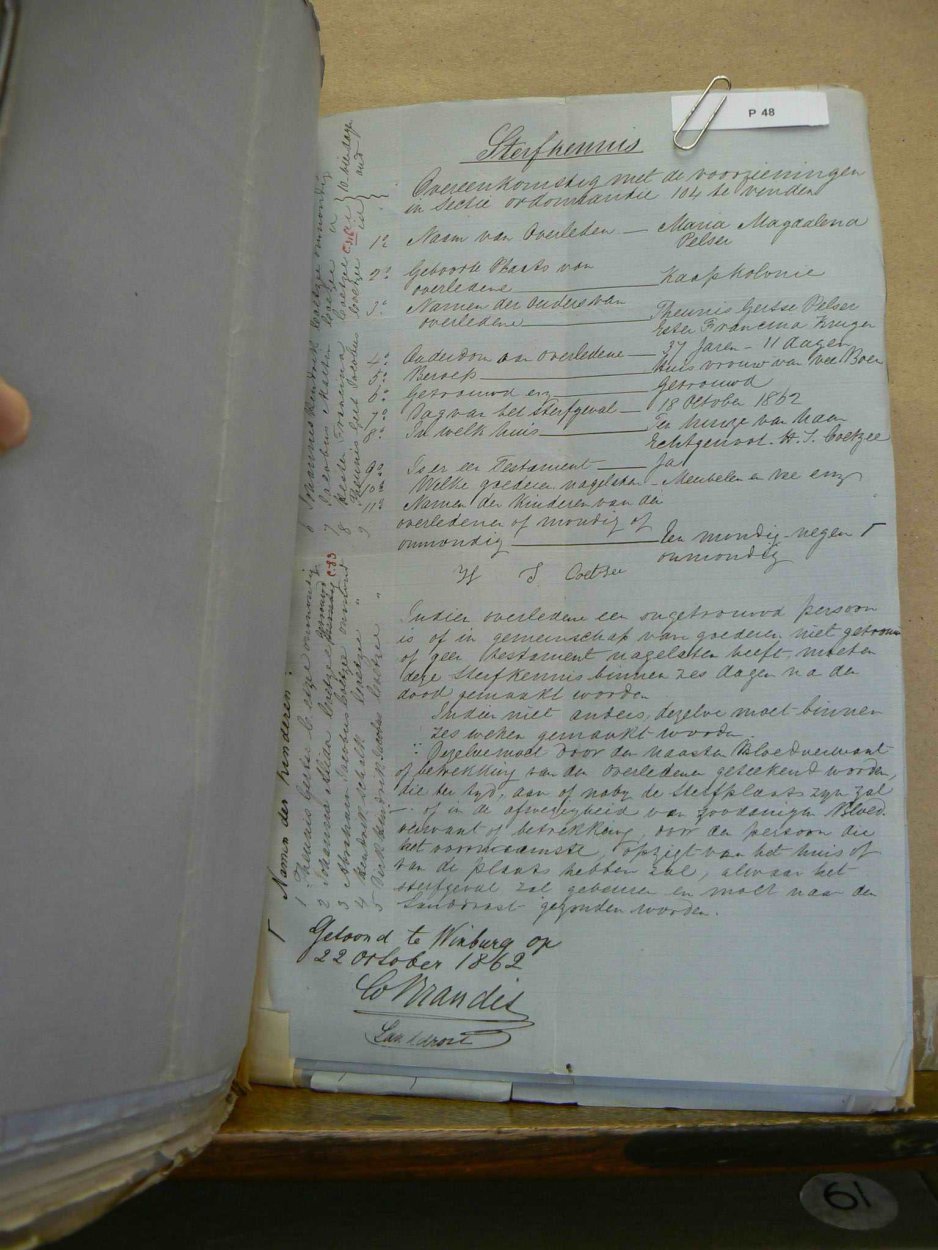 P 48
Sterfkennis
Overeenkomstig met de voorzieningen
in Sectie ordonnantie 104 te vinden
1e Naam van Overleden — Maria Magdalena
Pelser
2e Geboorte Plaats van
overledene — Kaapkolonie
3e Namen der Ouders van
overledene — Theunis Gertse Pelser
Ester Francina Kruger
4e Ouderdom van Overledene — 37 Jaren - 11 dagen
5e Beroep — Huisvrouw van vee Boer
6e Getrouwd enz — Getrouwd
7e Dag van het Sterfgeval — 18 October 1862
8e In welk huis — Ten huize van haar
Echtgenoot. H. J. Coetzee
9e Is er een Testament — Ja
10e Welke goederen nagelaten — Meubelen en vee enz
11e Namen der Kinderen van de
overledenen of mondig of
onmondig — Een mondig - negen
onmondig
H J Coetzee
Indien overledene een ongetrouwd persoon
is of in gemeenschap van goederen niet getrouwd
of geen testament nagelaten heeft, moeten
deze Sterfkennis binnen zes dagen na den
dood gemaakt worden
Indien niet anders, dezelve moet binnen
zes weken gemaakt worden
Dezelve moet door den naasten Bloedverwant
of betrekking van den Overledenen geteekend worden,
die ter tyd, aan of naby de Sterfplaats zyn zal
— of in de afwezigheid van zoodanigen Bloed
verwant of betrekking, door den persoon die
het voornaamste opzigt van het huis of
van de plaats hebben zal, alwaar het
sterfgeval zal gebeuren en moet naar den
Landdrost gezonden worden.
Getoond te Winburg op
22 October 1862
Co Brandis
Landdrost
Namen der kinderen:
1 Theunis Gerts Coetzee onmondig
2 Johanna Coetzee
3 Abraham Jacobus Coetzee onmondig
4 Hendrik Schalk Coetzee "
5 Dirk Hendrik Jacobus Coetzee "
6 Johannes Hendrik Coetzee onmondig
7 Jacobus Coetzee
8 Hester Francina Coetzee
9 Theunis Gert Jacobus Coetzee
61